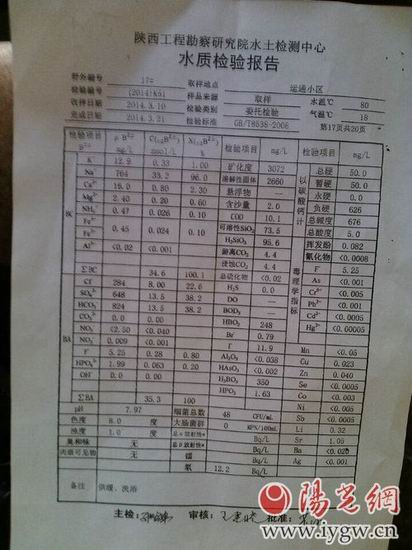 陕西工程勘察研究院水土检测中心
水质检验报告
野外编号 17# 取样地点 运通小区
检验编号 (2014)K51 样品来源 取样 水温℃ 80
收样日期 2014.3.10 检验类别 委托检验 气温℃ 18
完成日期 2014.3.21 检验标准 GB/T8538-2008 第17页共20页
检验项目 mg/L 检验项目 mg/L 检验项目 mg/L
K⁺ 12.9 0.33 1.00 矿化度 3072 总硬 50.0
Na⁺ 764 33.2 96.0 溶解性固体 2660 暂硬 50.0
Ca²⁺ 16.0 0.80 2.30 悬浮物 永硬 0.0
Mg²⁺ 2.40 0.20 0.60 含沙量 2.6 负硬 626
NH₄⁺ 0.47 0.026 0.10 COD 10.1 总碱度 676
Fe³⁺ 可溶性SiO₂ 73.5 总酸度 5.0
Fe²⁺ 0.45 0.024 0.10 H₂SiO₃ 95.6 挥发酚 0.082
Al³⁺ <0.02 <0.001 游离CO₂ 4.4 氰化物 <0.0008
侵蚀CO₂ 4.4 F⁻ 5.25
∑BC 34.6 100.1 总硫化物 <0.02 As <0.001
Cl⁻ 284 8.00 22.6 H₂S 0.0 Cr⁶⁺ <0.005
SO₄²⁻ 648 13.5 38.2 DO Pb²⁺ <0.001
HCO₃⁻ 824 13.5 38.2 BOD₅ Cd²⁺ <0.0005
CO₃²⁻ 0.00 0.0 HBO₂ 248 Hg²⁺ <0.0005
NO₃⁻ <2.50 <0.040 Br⁻ 0.79
NO₂⁻ 0.009 <0.001 I⁻ 11.9 Mn <0.05
F⁻ 5.25 0.28 0.80 Al₂O₃ <0.038 Cu 0.023
HPO₄²⁻ 1.99 0.063 0.20 HAsO₂ <0.002 Zn <0.040
OH⁻ 0.00 0.0 H₃BO₃ 350 Se <0.0005
HPO₃ 1.63 Co <0.003
∑BA 35.3 100 Ni <0.005
pH 7.97 细菌总数 48 CFU/mL Sb <0.0005
色度 8.0 度 大肠菌群 0 Li 0.32
浊度 1.0 度 总α放射性 Bq/L Sr 1.05
臭和味 无 总β放射性 Bq/L Ba <0.020
肉眼可见物 无 镭 Bq/L Ag <0.001
氡 12.2 Bq/L
备注 供暖、洗浴
主检: 审核: 批准:
陽光網
www.iygw.cn